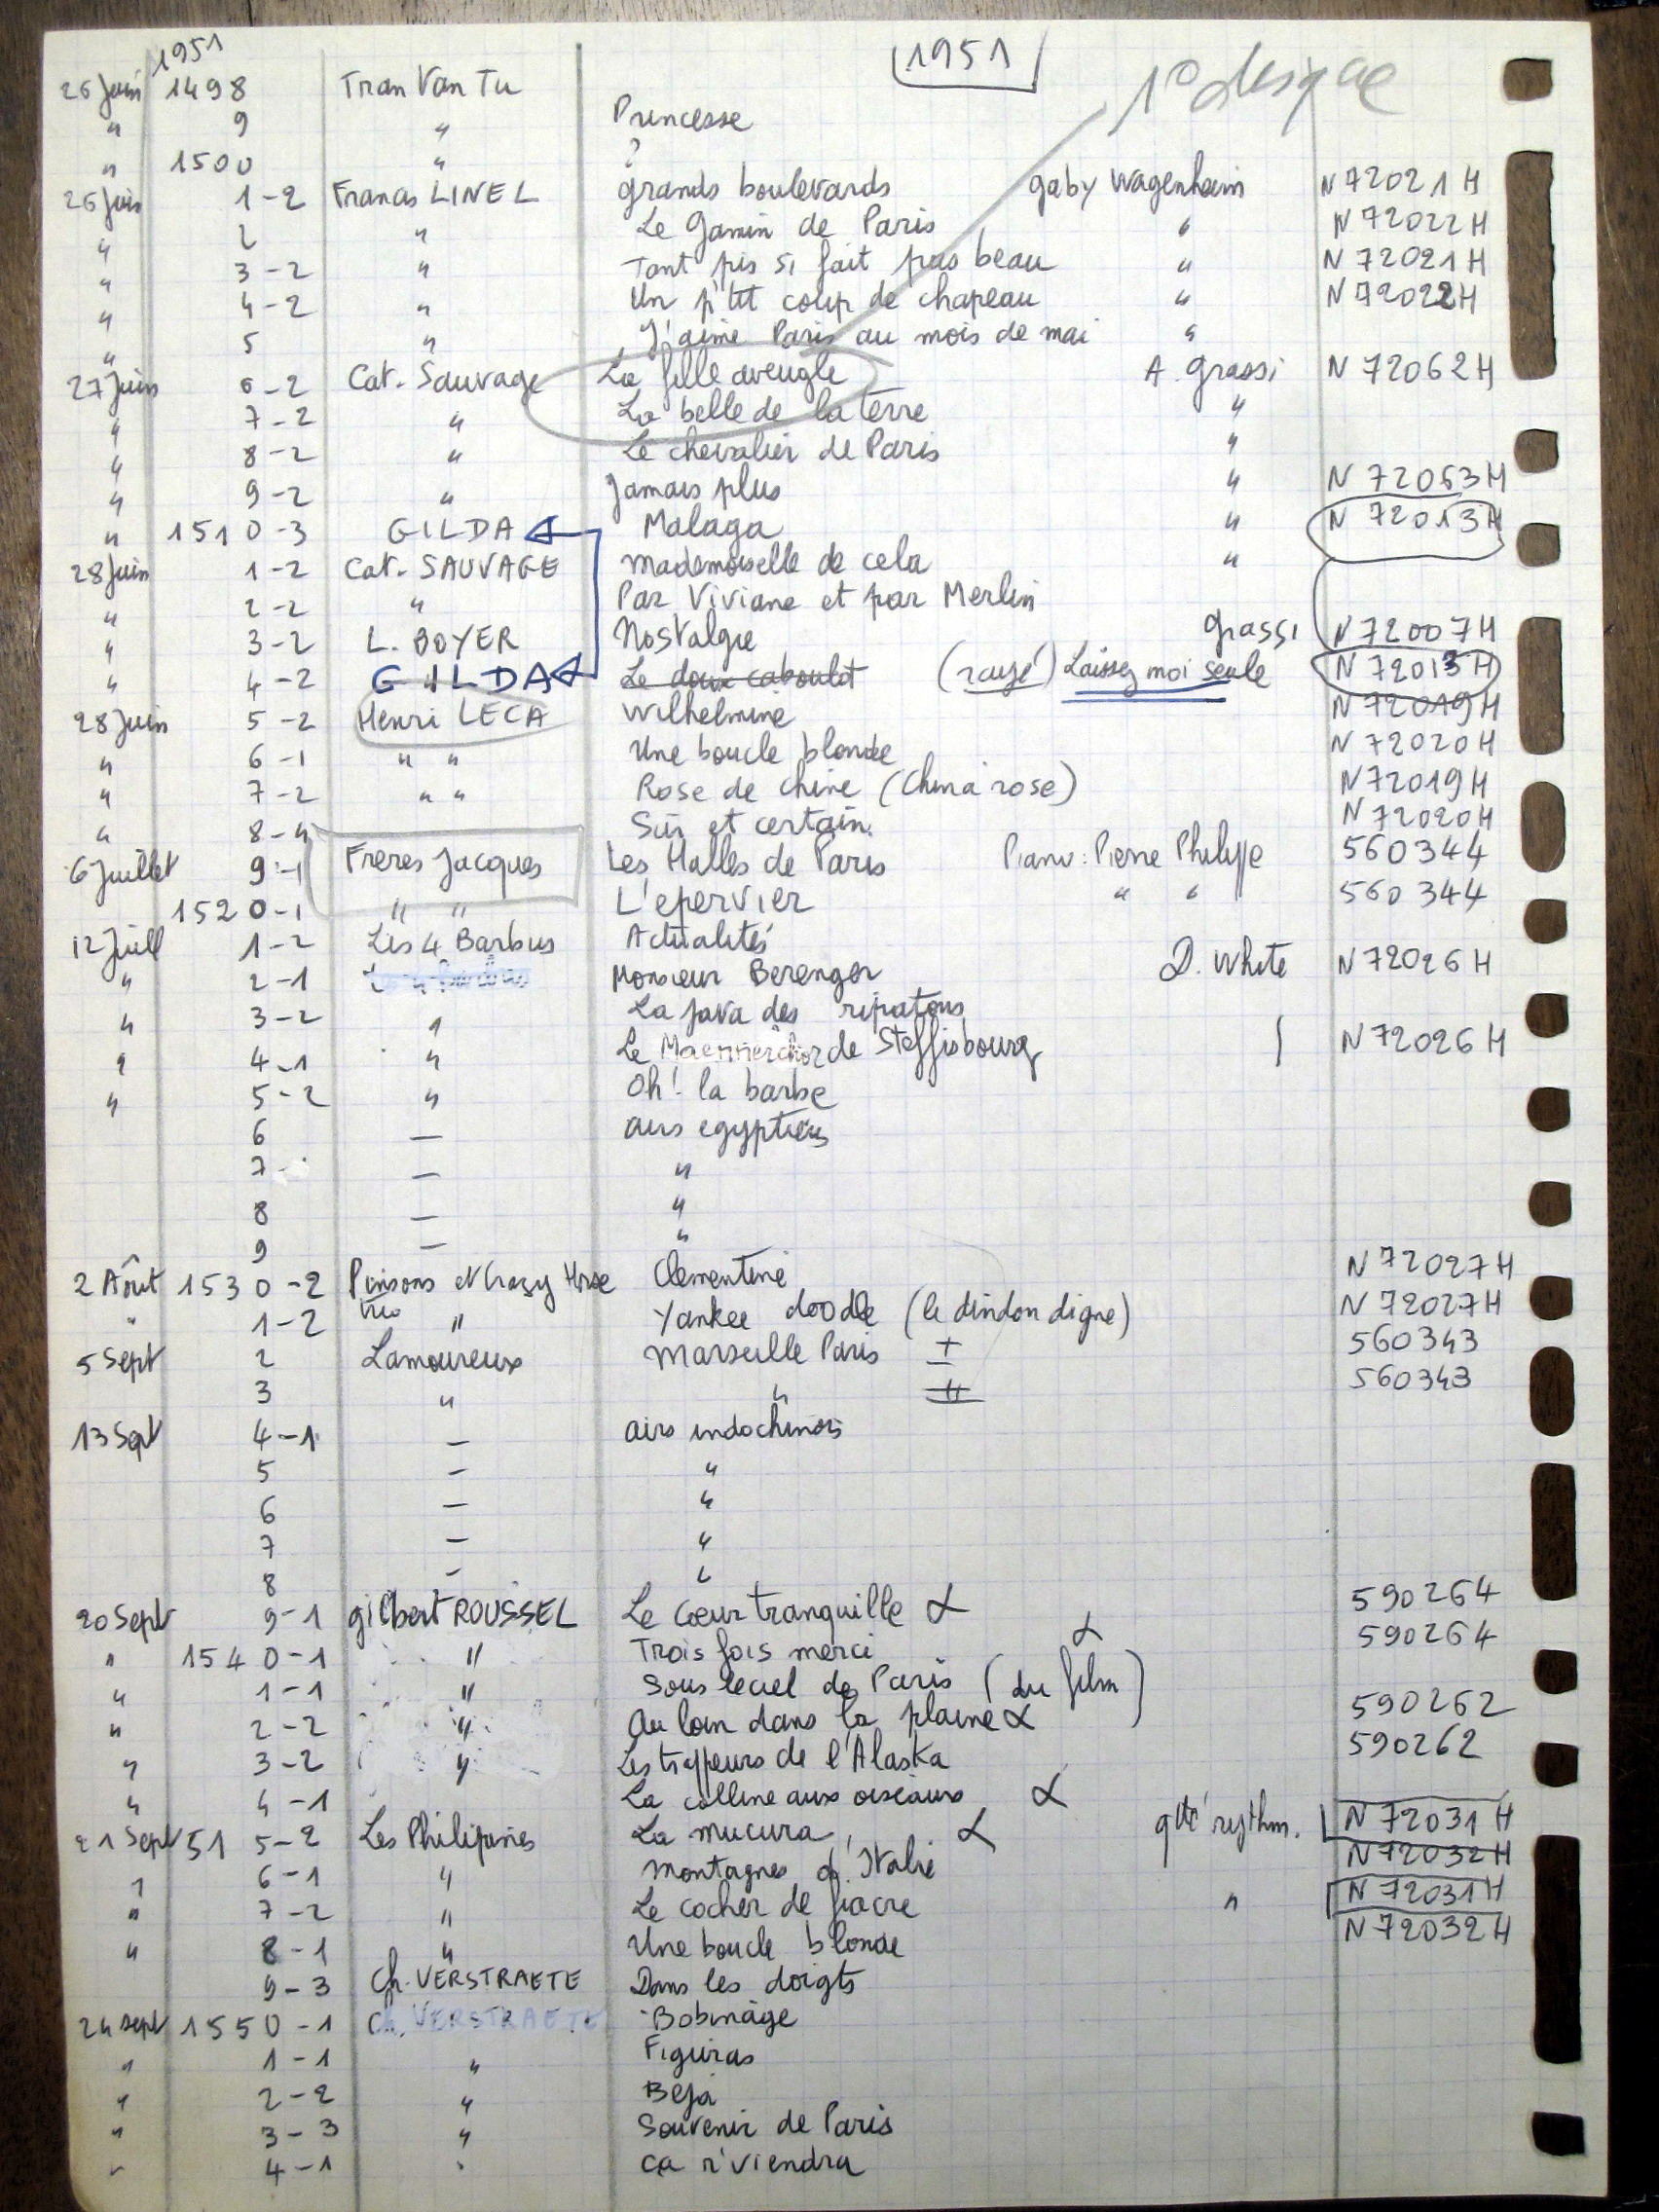 1951 1951 1° disque
26 Juin 1498 Tran Van Tu
" 9 " Princesse
" 1500 " ?
26 Juin 1-2 Francis LINEL grands boulevards gaby Wagenheim N 72021 H
" 2 " Le gamin de Paris " N 72022 H
" 3-2 " Tant pis si fait pas beau " N 72021 H
" 4-2 " Un p'tit coup de chapeau " N 72022H
" 5 " J'aime Paris au mois de mai "
27 Juin 6-2 Cat. Sauvage La fille aveugle A. grassi N 72062 H
" 7-2 " La belle de la terre "
" 8-2 " Le chevalier de Paris "
" 9-2 " Jamais plus " N 72063 H
" 1510-3 GILDA Malaga " N 72013H
28 Juin 1-2 Cat. SAUVAGE Mademoiselle de cela "
" 2-2 " Par Viviane et par Merlin
" 3-2 L. BOYER Nostalgie grassi N 72007 H
" 4-2 GILDA Le doux caboulot (rayé) Laissez moi seule N 72013 H
28 Juin 5-2 Henri LECA Wilhelmine N 72019 H
" 6-1 " " Une boucle blonde N 72020 H
" 7-2 " " Rose de chine (China rose) N 72019 H
" 8-4 Sûr et certain N 72020H
6 Juillet 9-1 Frères Jacques Les Halles de Paris Piano: Pierre Philippe 560344
1520-1 " " L'epervier " " 560344
12 Juill 1-2 Les 4 Barbus Actualités D. White N 72026 H
" 2-1 Monsieur Berenger
" 3-2 " La java des ripatons
" 4-1 " Le Maennerchor de Steffisbourg N 72026 H
" 5-2 " Oh! la barbe
6 — airs egyptiens
7 — "
8 — "
9 — "
2 Août 1530-2 Pinsons et Crazy Horse Clementine N 72027 H
" 1-2 trio " Yankee doodle (le dindon digne) N 72027 H
5 Sept 2 Lamoureux Marseille Paris I 560343
3 " " II 560343
13 Sept 4-1 — airs indochinois
5 — "
6 — "
7 — "
8 — "
20 Sept 9-1 gilbert ROUSSEL Le cœur tranquille α 590264
" 1540-1 " Trois fois merci α 590264
" 1-1 " Sous le ciel de Paris (du film)
" 2-2 " Au loin dans la plaine α 590262
" 3-2 " Les trappeurs de l'Alaska 590262
" 4-1 La colline aux oiseaux α
21 Sept 51 5-2 Les Philipines La mucura α qte rythm. N 72031 H
" 6-1 " Montagnes d'Italie N 72032 H
" 7-2 " Le cocher de fiacre " N 72031 H
" 8-1 " Une boucle blonde N 72032 H
9-3 Ch. VERSTRAETE Dans les doigts
24 sept 1550-1 Ch. VERSTRAETE Bobinage
" 1-1 " Figuras
" 2-2 " Beja
" 3-3 " Souvenir de Paris
" 4-1 " ça r'viendra